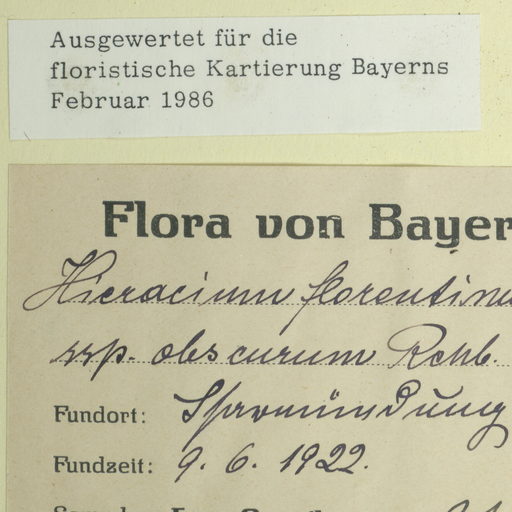 Ausgewertet für die
floristische Kartierung Bayerns
Februar 1986
Flora von Bayer
Hieracium florentinu
ssp. obscurum Rchb.
Fundort: Isarmündung
Fundzeit: 9. 6. 1922.